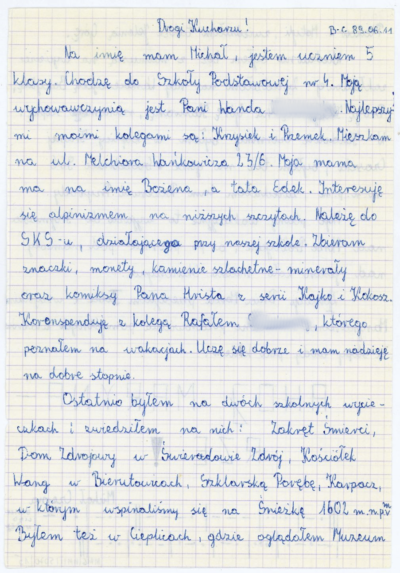 Drogi Kucharu!
B-C. 89.06.11
Na imię mam Michał, jestem uczniem 5
klasy. Chodzę do Szkoły Podstawowej nr 4. Moją
wychowawczynią jest Pani Wanda . Najlepszy-
mi moimi kolegami są: Krzysiek i Przemek. Mieszkam
na ul. Melchiora Wańkowicza 23/6. Moja mama
ma na imię Bożena, a tata Edek. Interesuję
się alpinizmem na niższych szczytach. Należę do
SKS-u, działającego przy naszej szkole. Zbieram
znaczki, monety, kamienie szlachetne - minerały
oraz komiksy Pana Hrista z serii Kajko i Kokosz.
Koronspenduję z kolegą Rafałem , którego
poznałem na wakacjach. Uczę się dobrze i mam nadzieję
na dobre stopnie.
Ostatnio byłem na dwóch szkolnych wycie-
czkach i zwiedziłem na nich: Zakręt Śmierci,
Dom Zdrojowy w Świeradowie Zdrój, Kościółek
Wang w Bierutowicach, Szklarską Porębę, Karpacz,
w którym wspinaliśmy się na Śnieżkę 1602 m.n.p.m
Byłem też w Cieplicach, gdzie oglądałem Muzeum